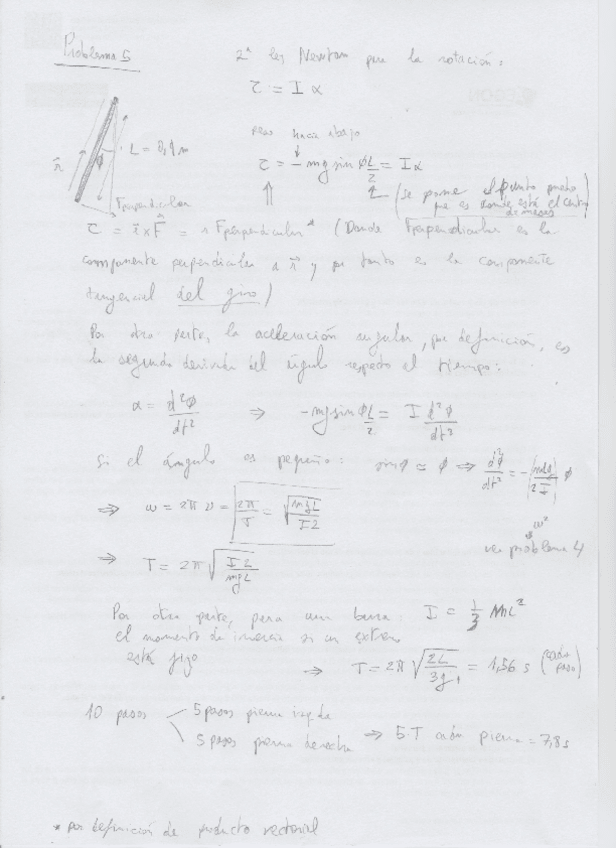 Problema 5
2ª ley Newton para la rotación:
τ = I α
L = 0,9 m
r⃗
ϕ
Fperpendicular
pero hacia abajo
τ = - mg sin ϕ L/2 = I α
(se pone el punto medio
que es donde está el centro
de masas)
τ = r⃗ x F⃗ = r Fperpendicular* (Donde Fperpendicular es la
componente perpendicular a r⃗ y por tanto es la componente
tangencial del giro)
Por otra parte, la aceleración angular, por definición, es
la segunda derivada del ángulo respecto al tiempo:
α = d²ϕ/dt² ⇒ -mg sin ϕ L/2 = I d²ϕ/dt²
Si el ángulo es pequeño: sin ϕ ≃ ϕ ⇒ d²ϕ/dt² = -(mgL/2I) ϕ
ω²
ver problema 4
⇒ ω = 2π ν = 2π/T = √(mgL/I2)
⇒ T = 2π √(I2/mgL)
Por otra parte, para una barra: I = 1/3 mL²
el momento de inercia si un extremo
está fijo
⇒ T = 2π √(2L/3g) = 1,56 s (cada paso)
10 pasos
5 pasos pierna izqda
5 pasos pierna derecha ⇒ 5·T pierna = 7,8 s
* por definición de producto vectorial